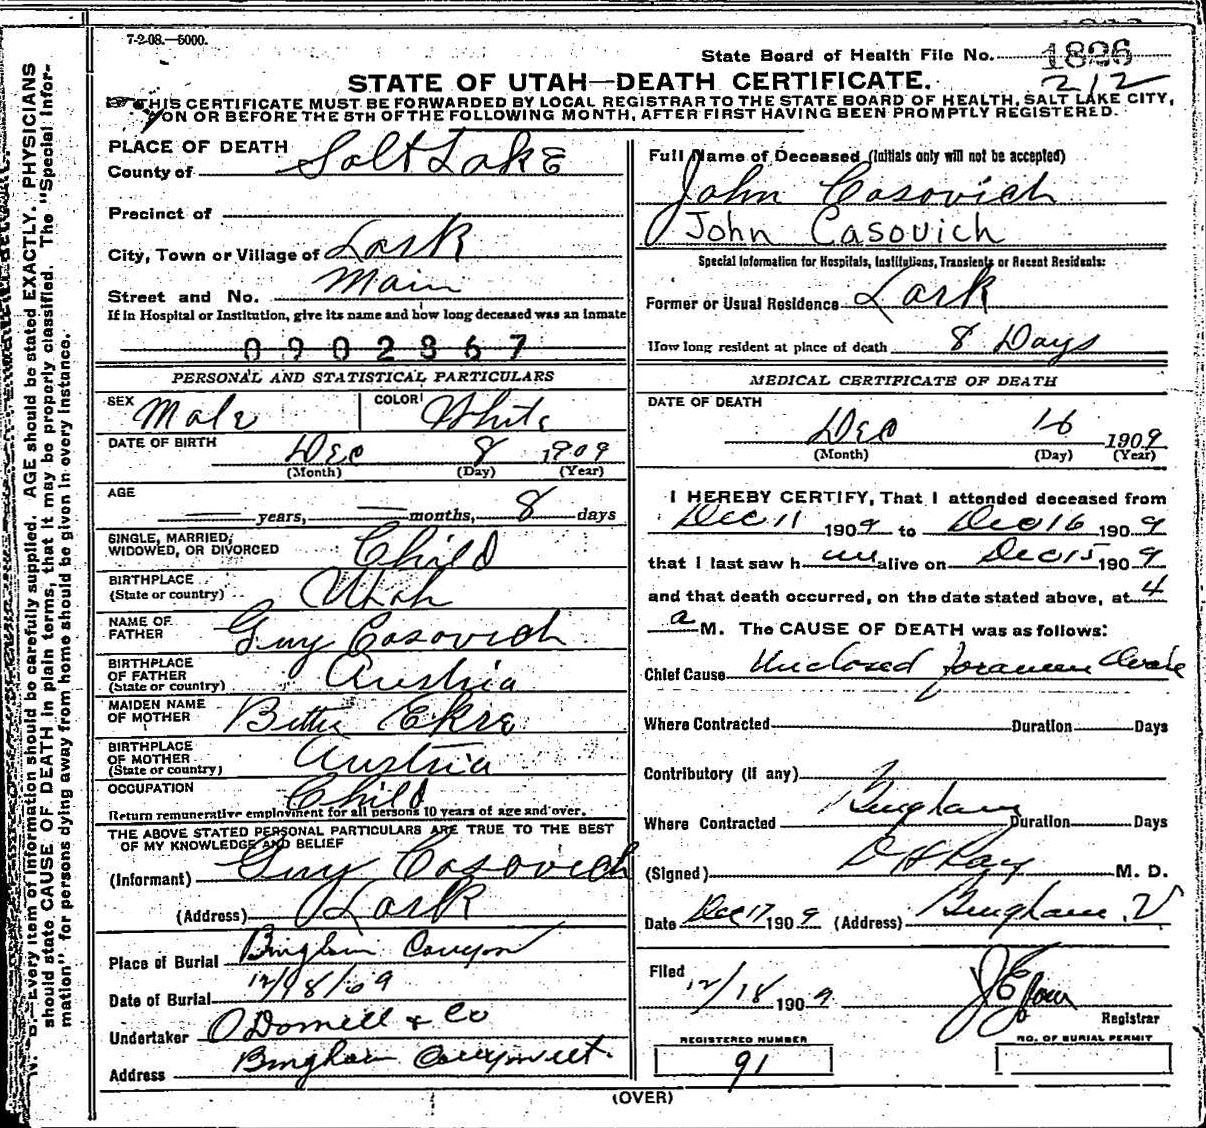 7-2-08.—5000.
State Board of Health File No. 1826
212
STATE OF UTAH—DEATH CERTIFICATE.
THIS CERTIFICATE MUST BE FORWARDED BY LOCAL REGISTRAR TO THE STATE BOARD OF HEALTH, SALT LAKE CITY,
ON OR BEFORE THE 5TH OF THE FOLLOWING MONTH, AFTER FIRST HAVING BEEN PROMPTLY REGISTERED.
N. B.—Every item of information should be carefully supplied. AGE should be stated EXACTLY. PHYSICIANS
should state CAUSE OF DEATH in plain terms, that it may be properly classified. The "Special Infor-
mation" for persons dying away from home should be given in every instance.
PLACE OF DEATH
County of Salt Lake
Precinct of
City, Town or Village of Lark
Street and No. Main
If in Hospital or Institution, give its name and how long deceased was an inmate
0902367
PERSONAL AND STATISTICAL PARTICULARS
SEX Male COLOR White
DATE OF BIRTH Dec 8 1909
(Month) (Day) (Year)
AGE
years, months, 8 days
SINGLE, MARRIED,
WIDOWED, OR DIVORCED Child
BIRTHPLACE
(State or country) Utah
NAME OF
FATHER Guy Casovich
BIRTHPLACE
OF FATHER
(State or country) Austria
MAIDEN NAME
OF MOTHER Bettie Ekre
BIRTHPLACE
OF MOTHER
(State or country) Austria
OCCUPATION Child
Return remunerative employment for all persons 10 years of age and over.
THE ABOVE STATED PERSONAL PARTICULARS ARE TRUE TO THE BEST
OF MY KNOWLEDGE AND BELIEF
(Informant) Guy Casovich
(Address) Lark
Place of Burial Bingham Canyon
Date of Burial 12/18/09
Undertaker O Donnell & Co
Address Bingham Canyon Ut.
Full Name of Deceased (Initials only will not be accepted)
John Casovich
John Casovich
Special Information for Hospitals, Institutions, Transients or Recent Residents:
Former or Usual Residence Lark
How long resident at place of death 8 Days
MEDICAL CERTIFICATE OF DEATH
DATE OF DEATH
Dec 16 1909
(Month) (Day) (Year)
I HEREBY CERTIFY, That I attended deceased from
Dec 11 1909 to Dec 16 1909
that I last saw h im alive on Dec 15 1909
and that death occurred, on the date stated above, at 4
a M. The CAUSE OF DEATH was as follows:
Chief Cause Unclosed foramen Ovale
Where Contracted Duration Days
Contributory (if any)
Where Contracted Bingham Duration Days
(Signed) M. D.
Date Dec 17 1909 (Address) Bingham, U
Filed 12/18 1909
Registrar
REGISTERED NUMBER
91
NO. OF BURIAL PERMIT
(OVER)